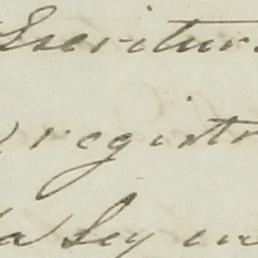 Escritur
registr
la Ley en